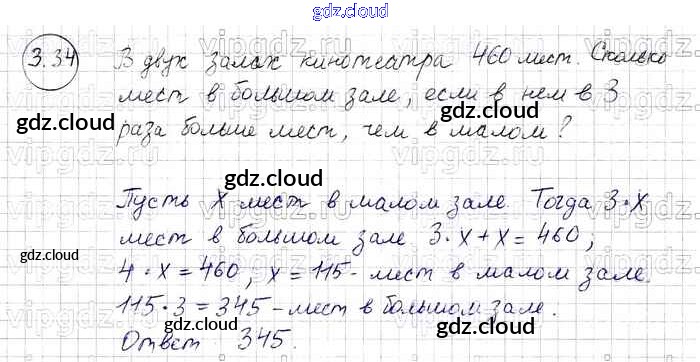 gdz.cloud
3.34 В двух залах кинотеатра 460 мест. Сколько
мест в большом зале, если в нем в 3
gdz.cloud
раза больше мест, чем в малом?
gdz.cloud
Пусть x мест в малом зале. Тогда 3·x
мест в большом зале. 3·x+x=460;
gdz.cloud
4·x=460, x=115 - мест в малом зале.
115·3=345 - мест в большом зале.
gdz.cloud
Ответ 345.